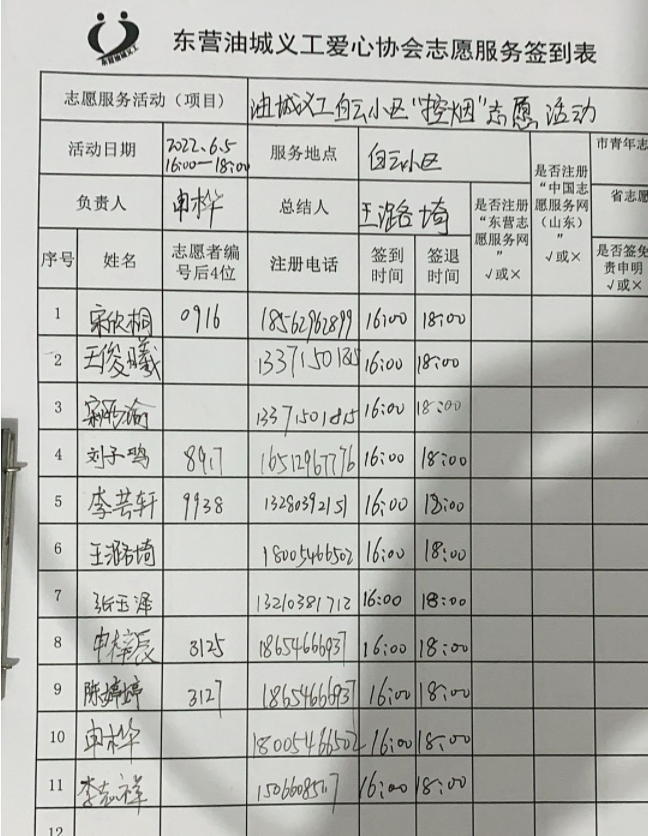 东营油城义工
东营油城义工爱心协会志愿服务签到表
志愿服务活动（项目） 油城义工白云小区“控烟”志愿活动
活动日期 2022.6.5 16:00—18:00 服务地点 白云小区
负责人 申桦 总结人 王潞琦
是否注册“东营志愿服务网” √或×
是否注册“中国志愿服务网（山东）” √或×
市青年志
省志愿
是否签免责申明 √或×
序号 姓名 志愿者编号后4位 注册电话 签到时间 签退时间
1 宋欣桐 0916 18562962899 16:00 18:00
2 王俊曦 16:00 18:00
3 13371501815 16:00 18:00
4 刘子鸣 8917 16512967776 16:00 18:00
5 李芸轩 9938 13280392151 16:00 18:00
6 王潞琦 18005466502 16:00 18:00
7 张玉泽 13210381712 16:00 18:00
8 申梓辰 3125 18654666937 16:00 18:00
9 陈婷婷 3127 18654666937 16:00 18:00
10 申桦 18005466502 16:00 18:00
11 李志祥 16:00 18:00
12